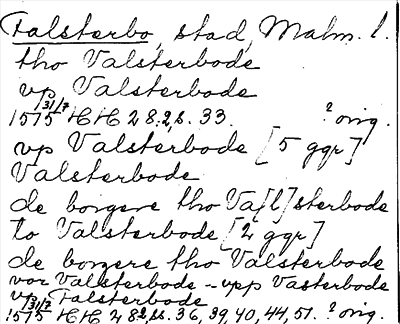 Falsterbo, stad, Malm. l.
tho Valsterbode
vp Valsterbode
1515 31/7 HH 28:2, s. 33. ? orig.
vp Valsterbode [5 ggr]
Valsterbode
de borgere tho Va[l]sterbode
to Valsterbode [2 ggr]
de borgere tho Valsterbode
vor Valsterbode - vpp Vasterbode
vp Falsterbode
1515 31/7 HH 28:2, s. 36, 39, 40, 44, 51. ? orig.